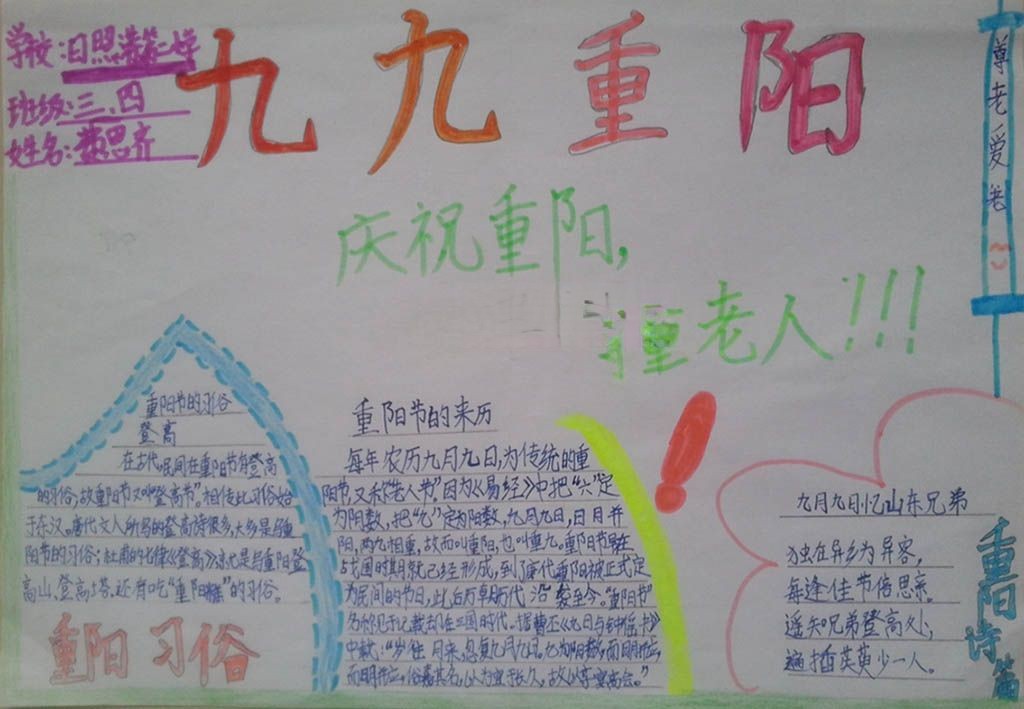 学校:日照
班级:三、四
姓名:费思齐
九九重阳
尊老爱老
庆祝重阳,
重老人!!!
重阳节的习俗
登高
在古代,民间在重阳节有登高
的习俗,故重阳节又叫“登高节”。相传此习俗始
于东汉。唐代文人所写的登高诗很多,大多是写重
阳节的习俗;杜甫的七律《登高》,就是写重阳登
高山、登高塔。还有吃“重阳糕”的习俗。
重阳习俗
重阳节的来历
每年农历九月九日,为传统的重
阳节,又称《老人节》因为《易经》中把“六”定
为阴数,把“九”定为阳数,九月九日,日月并
阳,两九相重,故而叫重阳,也叫重九。重阳节早在
战国时期就已经形成,到了唐代重阳被正式定
为民间的节日,此后历朝历代沿袭至今。“重阳节”
名称见于记载却在三国时代。据曹丕《九日与钟繇书》
中载:“岁往月来,忽复九月九日。九为阳数,而日月并应,
俗嘉其名,以为宜于长久,故以享宴高会。”
九月九日忆山东兄弟
独在异乡为异客,
每逢佳节倍思亲。
遥知兄弟登高处,
遍插茱萸少一人。
重阳诗篇